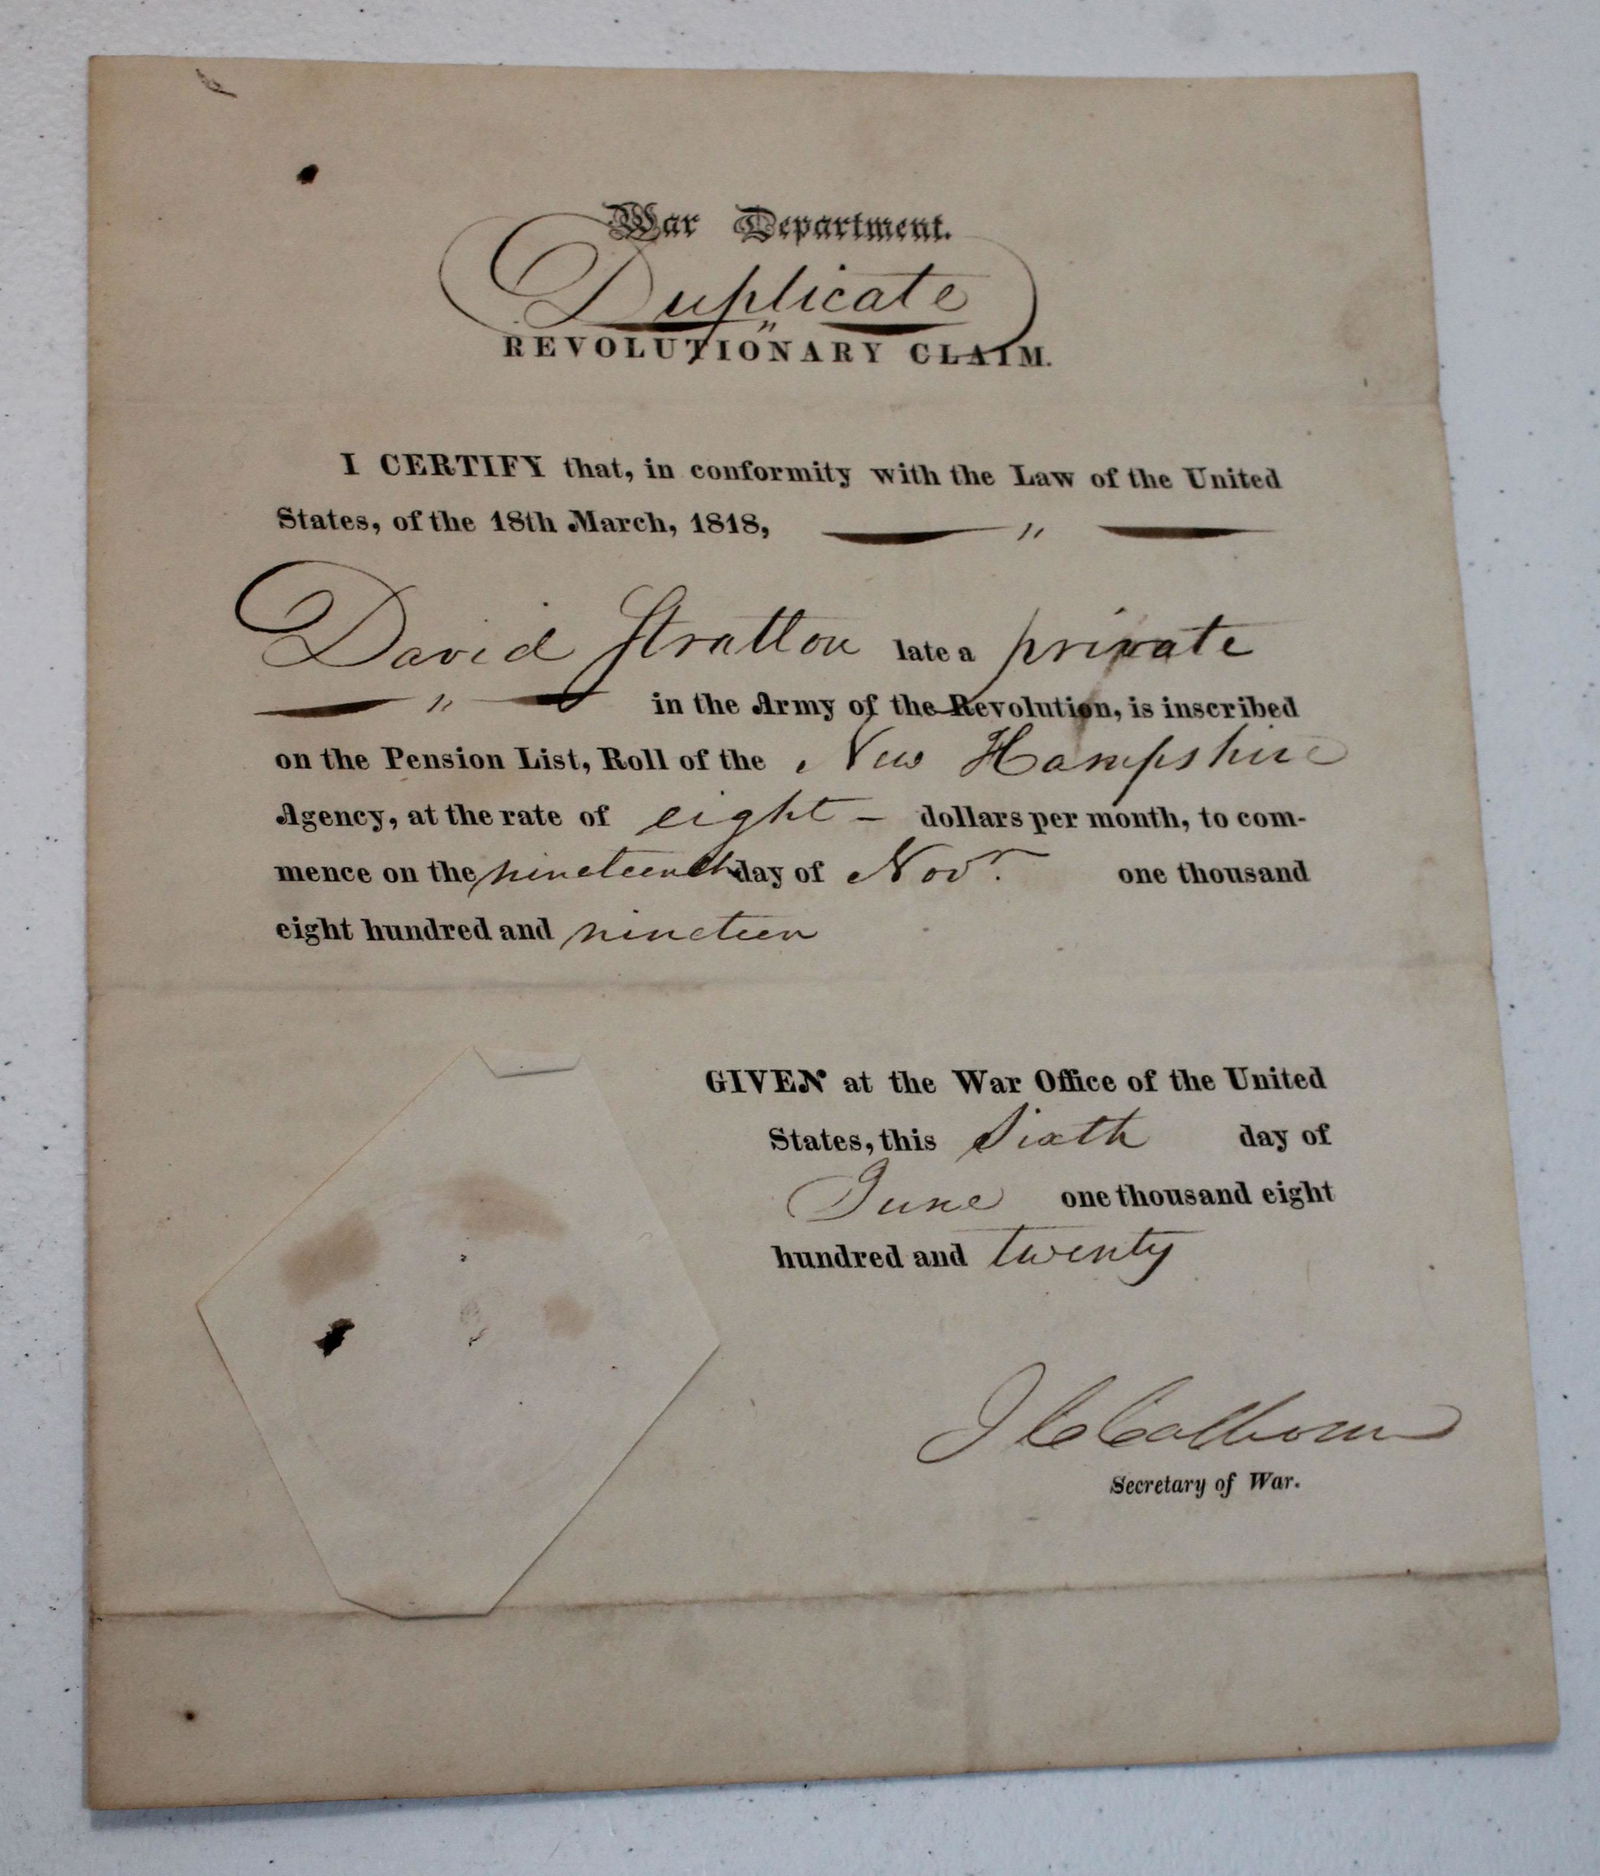 War Department.
Duplicate
REVOLUTIONARY CLAIM.
I CERTIFY that, in conformity with the Law of the United
States, of the 18th March, 1818, "
David Stratton late a private
" in the Army of the Revolution, is inscribed
on the Pension List, Roll of the New Hampshire
Agency, at the rate of eight - dollars per month, to com-
mence on the nineteenth day of Novr. one thousand
eight hundred and nineteen
GIVEN at the War Office of the United
States, this Sixth day of
June one thousand eight
hundred and twenty
J C Calhoun
Secretary of War.